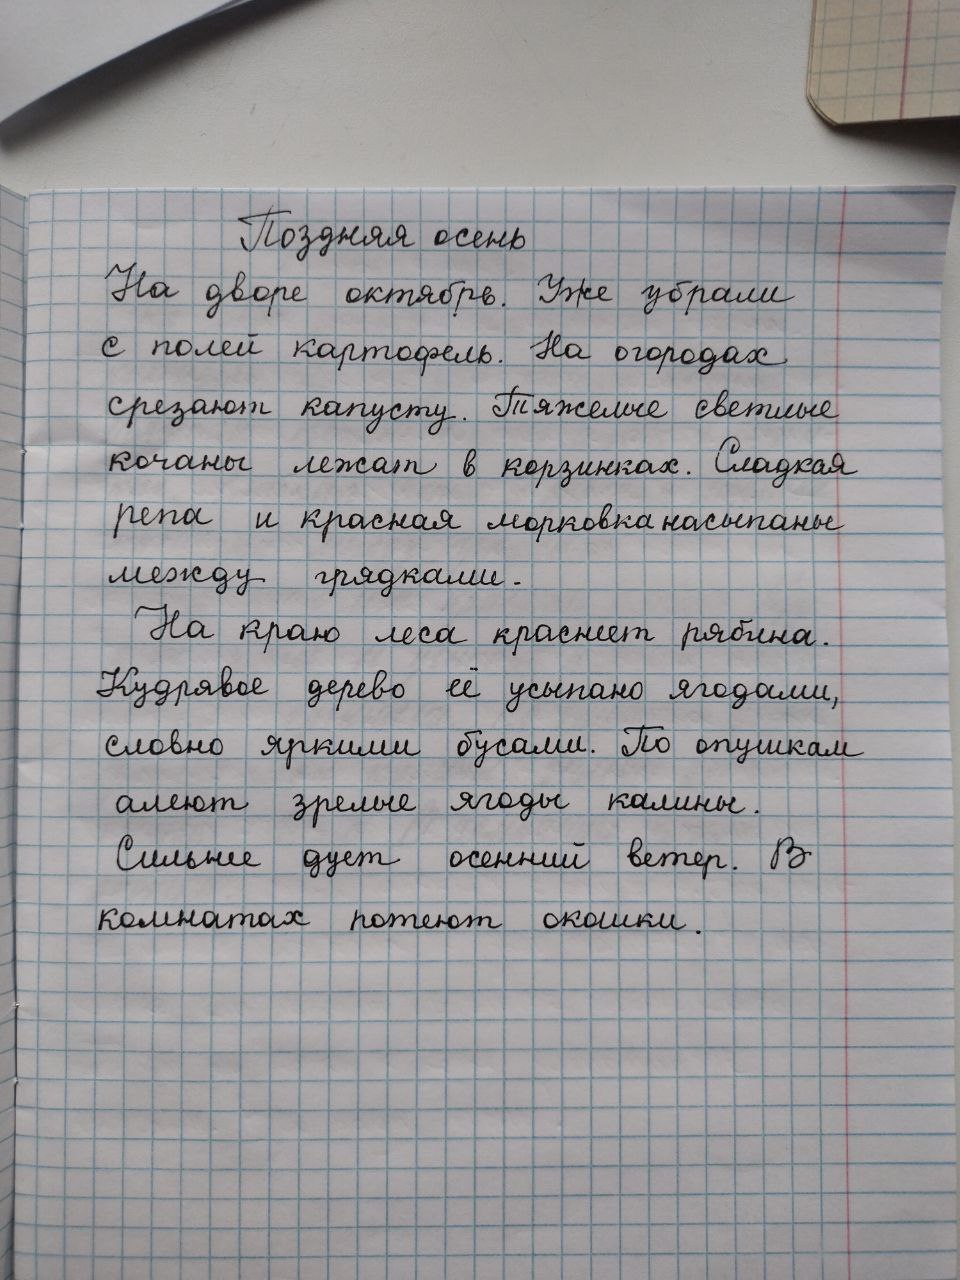 Поздняя осень
На дворе октябрь. Уже убрали
с полей картофель. На огородах
срезают капусту. Тяжелые светлые
кочаны лежат в корзинках. Сладкая
репа и красная морковка насыпаны
между грядками.
На краю леса краснеет рябина.
Кудрявое дерево её усыпано ягодами,
словно яркими бусами. По опушкам
алеют зрелые ягоды калины.
Сильнее дует осенний ветер. В
комнатах потеют окошки.